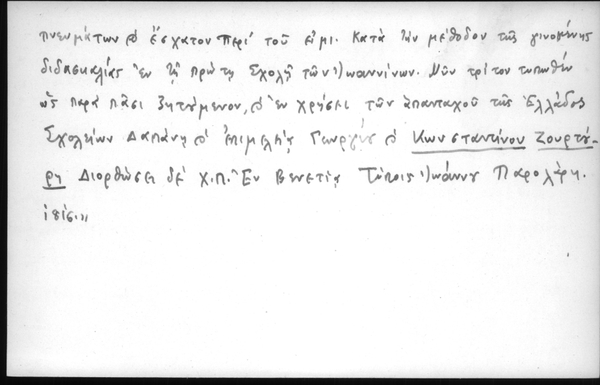 πνευμάτων ϗ ἔσχατον περί τοῦ εἰμι. Κατὰ τὴν μέθοδον τῆς γινομένης
διδασκαλίας ἐν τῇ πρώτῃ Σχολῇ τῶν Ἰωαννίνων. Νῦν τρίτον τυπωθέν
ὡς παρὰ πᾶσι ζητούμενον, ϗ ἐν χρήσει τῶν ἁπανταχοῦ τῆς Ἑλλάδος
Σχολείων Δαπάνῃ ϗ ἐπιμελείᾳ Γεωργίου ϗ Κωνσταντίνου Ζουρτύ-
ρη Διορθώσει δέ Χ.Π. Ἐν Βενετίᾳ Τύποις Ἰωάννου Παρολάρη.